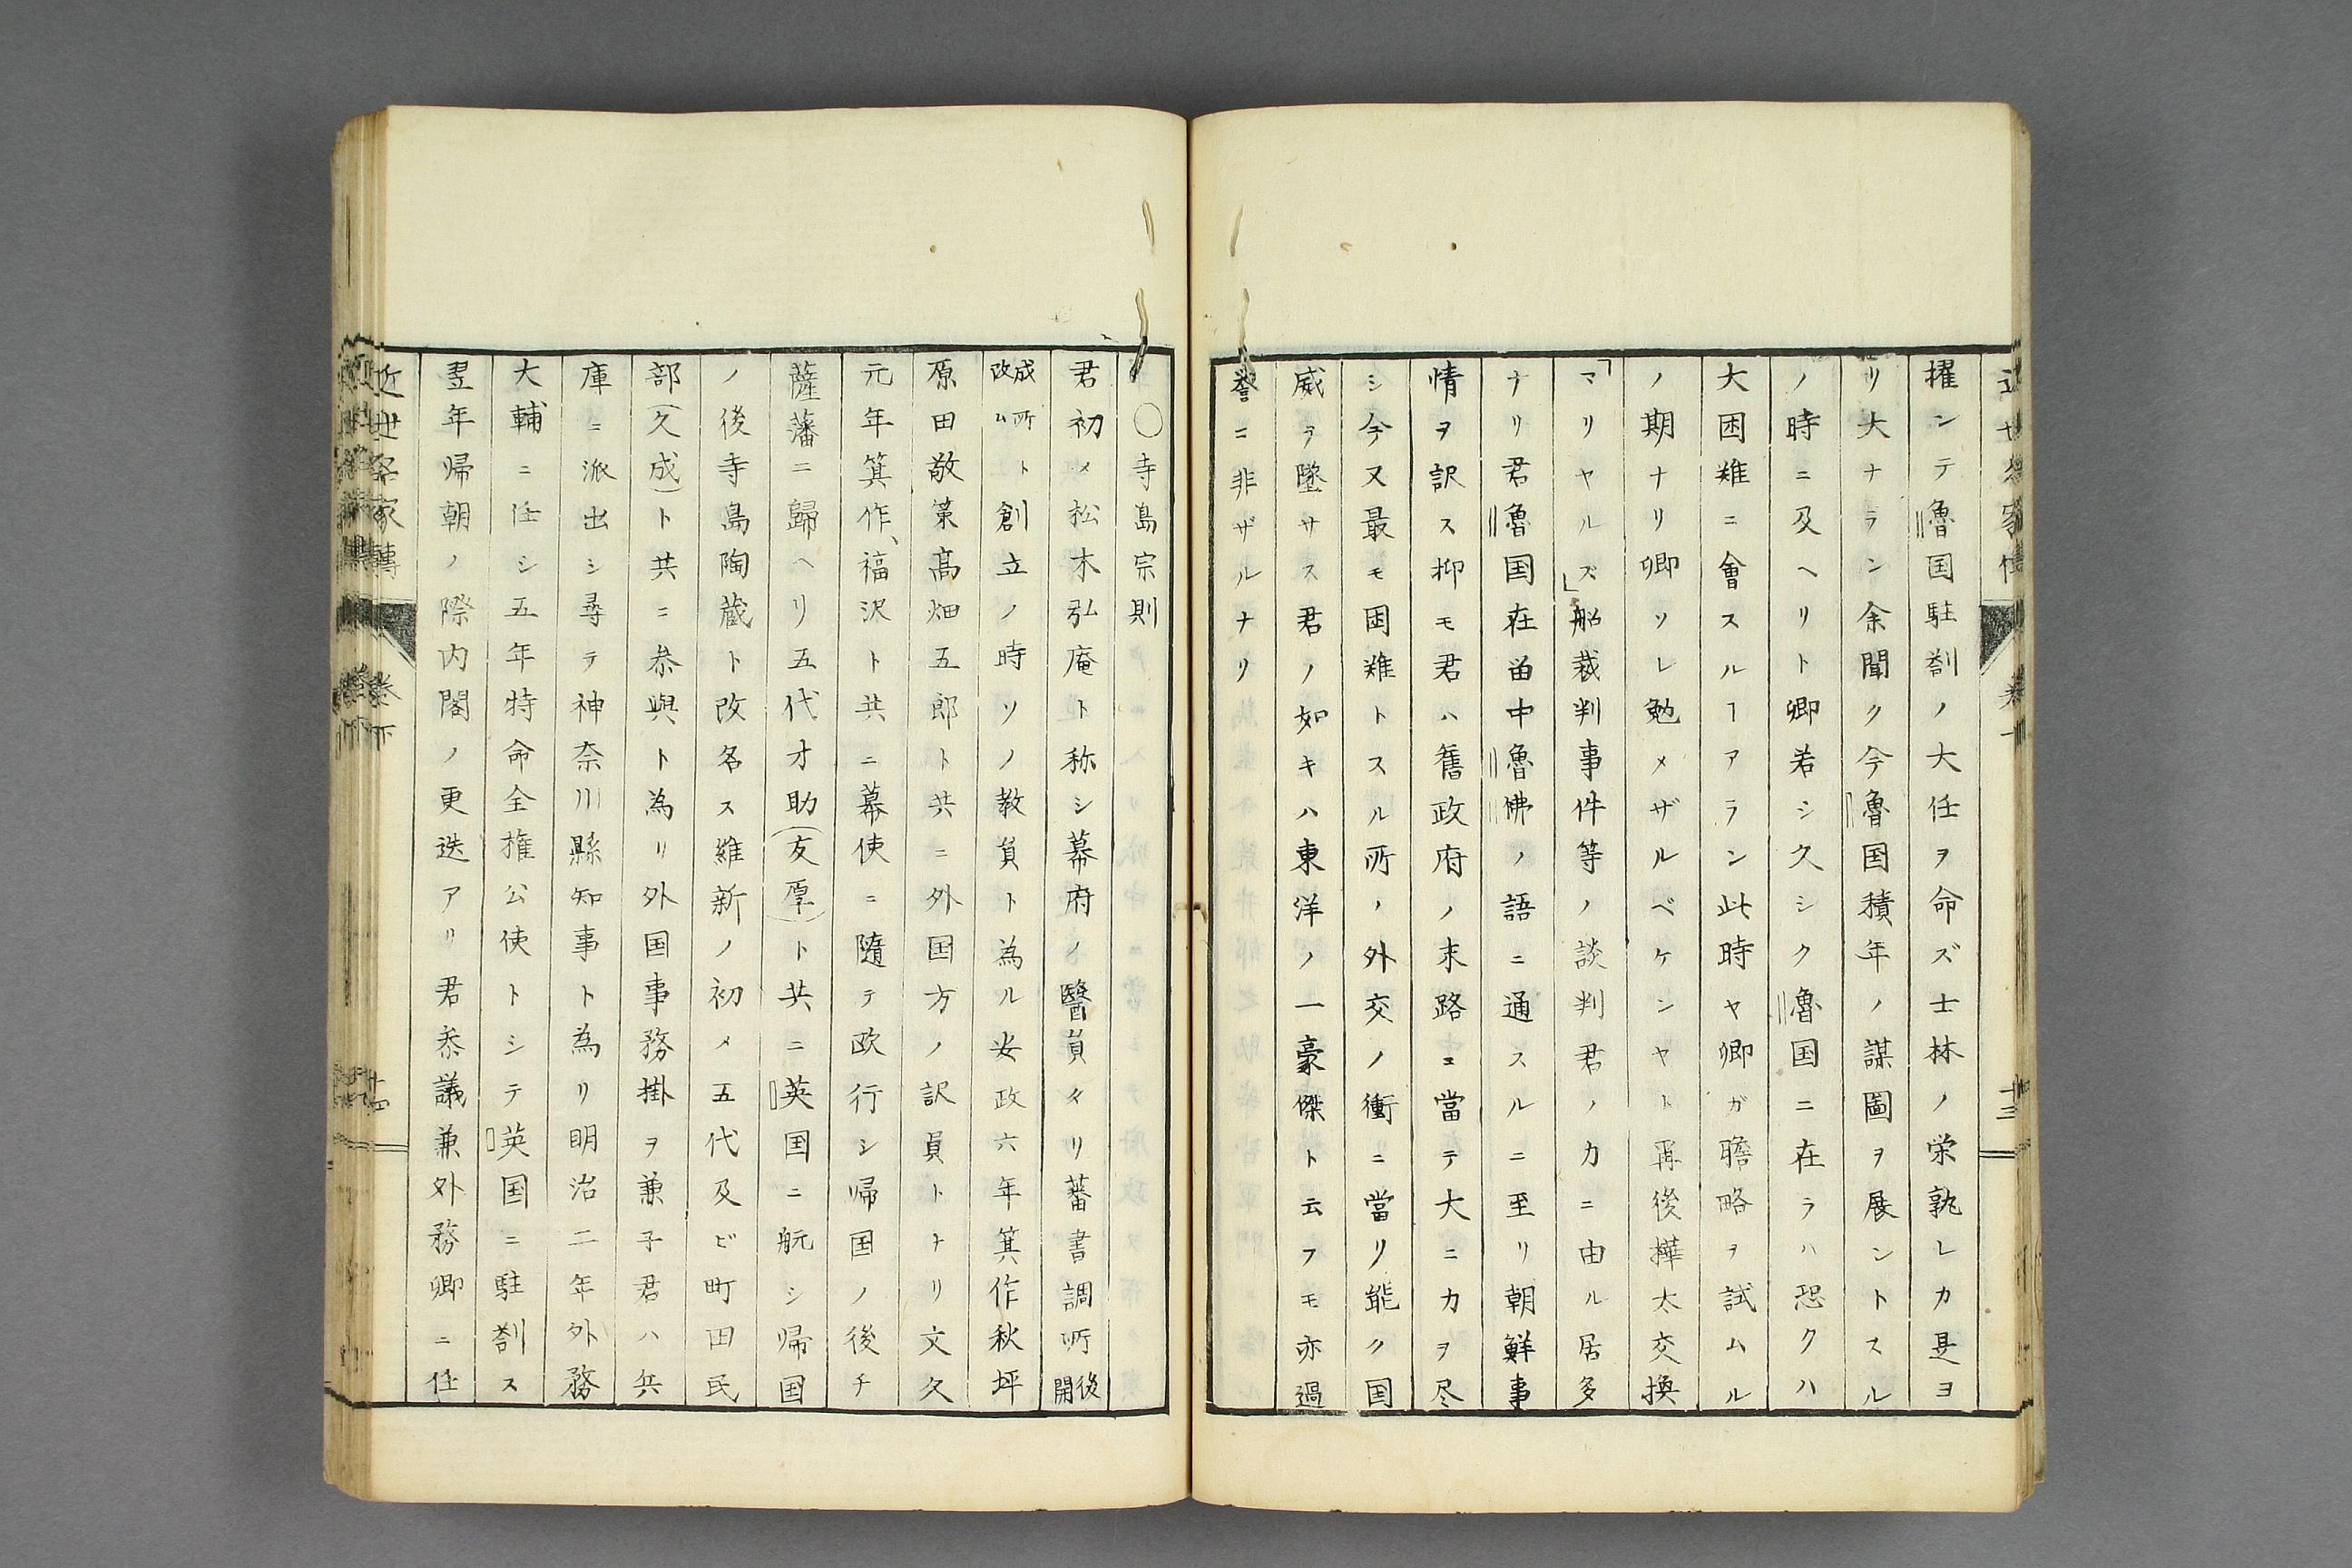 擢ンテ魯国駐劄ノ大任ヲ命ズ士林ノ栄孰レカ是ヨ
リ大ナラン余聞ク今魯国積年ノ謀圖ヲ展ントスル
ノ時ニ及ヘリト卿若シ久シク魯国ニ在ラハ恐クハ
大困難ニ會スルヿアラン此時ヤ卿ガ瞻略ヲ試ムル
ノ期ナリ卿ソレ勉メザルベケンヤト再後樺太交換
「マリヤルズ」船裁判事件等ノ談判君ノカニ由ル居多
ナリ君魯国在留中魯佛ノ語ニ通スルニ至リ朝鮮事
情ヲ訳ス抑モ君ハ舊政府ノ末路ニ當テ大ニカヲ尽
シ今又最モ困難トスル所ノ外交ノ衝ニ當リ能ク国
威ヲ墜サス君ノ如キハ東洋ノ一豪傑ト云フモ亦過
譽ニ非ザルナリ
○寺島宗則
君初メ松木弘庵ト称シ幕府ノ醫員タリ蕃書調所後開
成所ト改ム創立ノ時ソノ教員ト為ル安政六年箕作秋坪
原田敬策高畑五郎ト共ニ外国方ノ訳員トナリ文久
元年箕作、福沢ト共ニ幕使ニ随テ欧行シ帰国ノ後チ
薩藩ニ歸ヘリ五代才助(友厚)ト共ニ英国ニ航シ帰国
ノ後寺島陶蔵ト改名ス維新ノ初メ五代及ビ町田民
部(久成)ト共ニ参與ト為リ外国事務掛ヲ兼子君ハ兵
庫ニ派出シ尋テ神奈川縣知事ト為リ明治二年外務
大輔ニ任シ五年特命全権公使トシテ英国ニ駐劄ス
翌年帰朝ノ際内閣ノ更迭アリ君参議兼外務卿ニ任
近世名家轉 巻下 十四